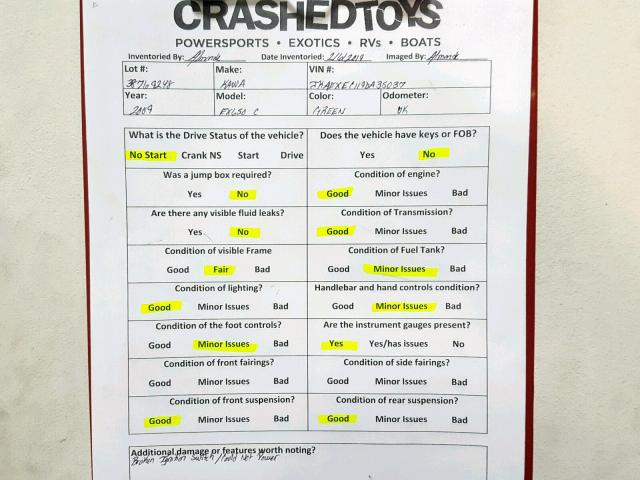 CRASHEDTOYS
POWERSPORTS • EXOTICS • RVs • BOATS
Inventoried By: Date Inventoried: 2/6/2019 Imaged By:
Lot #: Make: VIN #:
KAWA
Year: Model: Color: Odometer:
2009 EX650 C GREEN
What is the Drive Status of the vehicle? Does the vehicle have keys or FOB?
No Start Crank NS Start Drive Yes No
Was a jump box required? Condition of engine?
Yes No Good Minor Issues Bad
Are there any visible fluid leaks? Condition of Transmission?
Yes No Good Minor Issues Bad
Condition of visible Frame Condition of Fuel Tank?
Good Fair Bad Good Minor Issues Bad
Condition of lighting? Handlebar and hand controls condition?
Good Minor Issues Bad Good Minor Issues Bad
Condition of the foot controls? Are the instrument gauges present?
Good Minor Issues Bad Yes Yes/has issues No
Condition of front fairings? Condition of side fairings?
Good Minor Issues Bad Good Minor Issues Bad
Condition of front suspension? Condition of rear suspension?
Good Minor Issues Bad Good Minor Issues Bad
Additional damage or features worth noting?
Broken Ignition Switch / Could Not Power